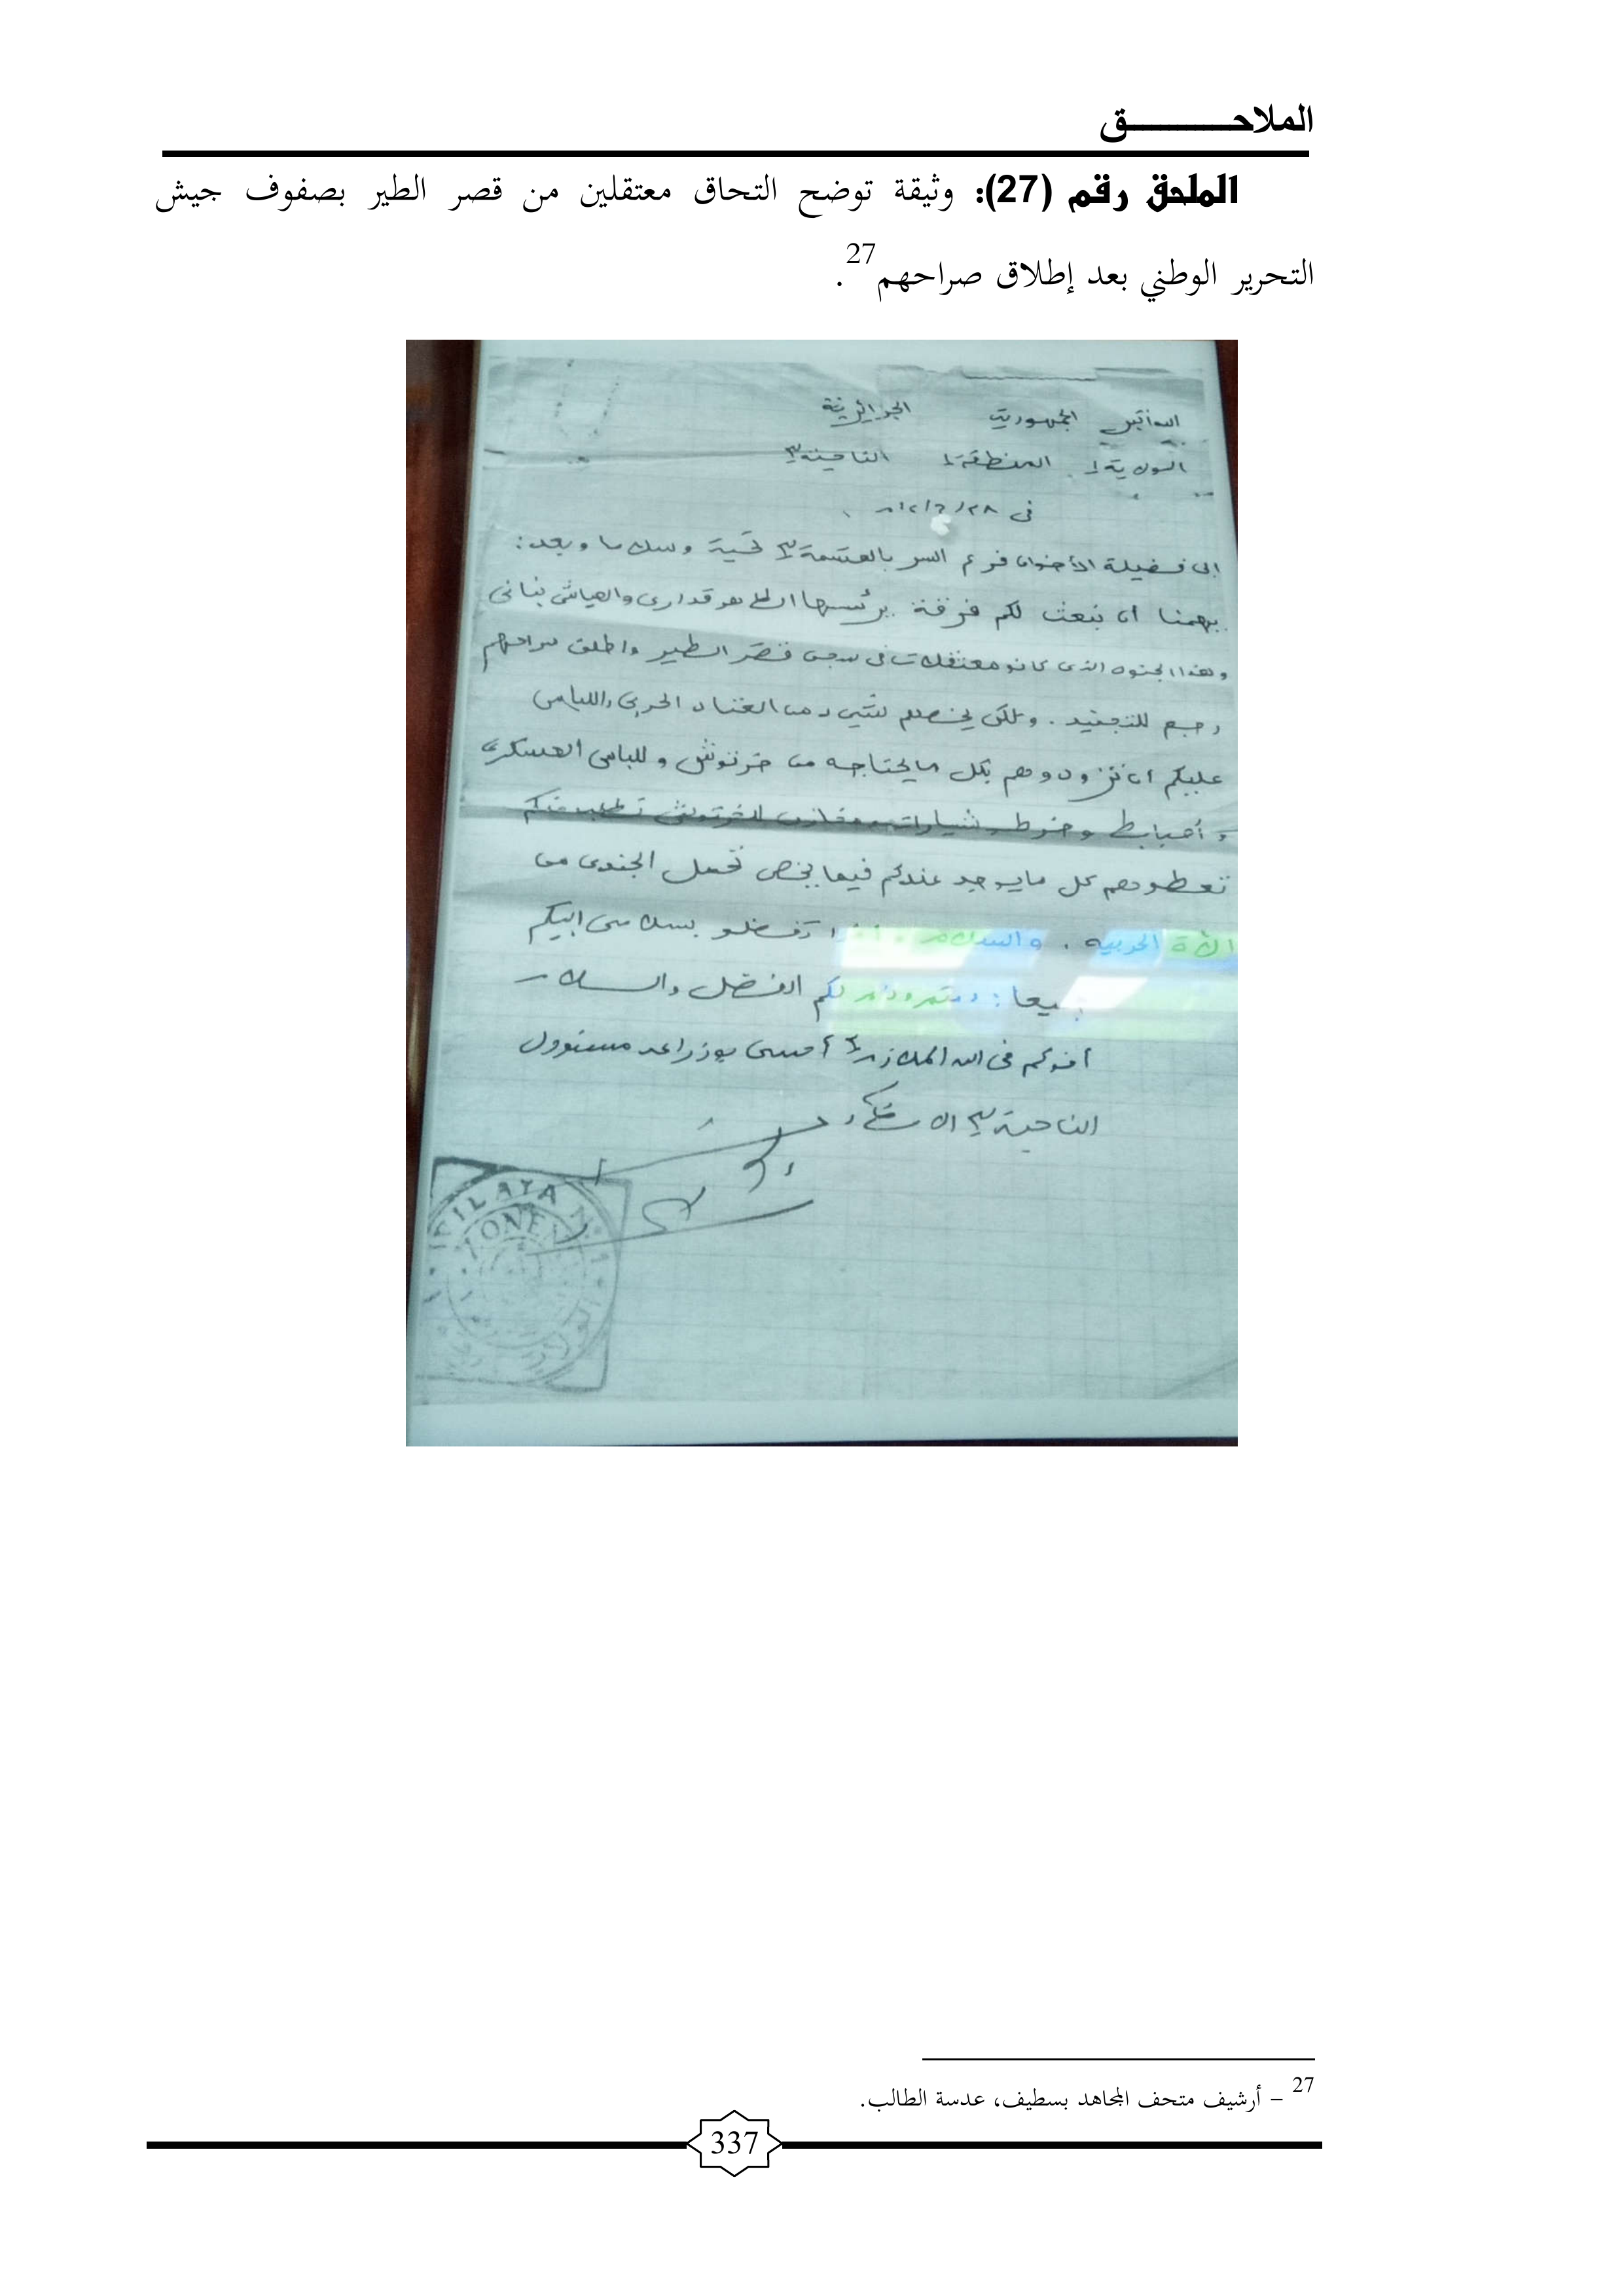 الملاحــــــــــق
الملحق رقم (27): وثيقة توضح التحاق معتقلين من قصر الطير بصفوف جيش
التحرير الوطني بعد إطلاق صراحهم27.
الجمهورية الجزائرية
الولاية 1 المنطقة 1 الناحية 3
في
الى فضيلة الأخوان فرع السر بالقسمة 3 تحية وسلاما وبعد:
يهمنا ان نبعث لكم فرقة يرئسها الطاهر قداري والعياشي بناني
وهذا الجنود الذي كانو معتقلات في سجن قصر الطير واطلق سراحهم
رجع للتجنيد . ولكن يخصهم من العتاد الحربي واللباس
عليكم ان تزودوهم بكل ما يحتاجه من خرتوش وللباس العسكري
للخرتوش نطلب منكم
تعطوهم كل ما يوجد عندكم فيما يخص تحمل الجندي من
الحربيه . والسلام تفضلو بسلامي اليكم
جميعا : ودمتم لكم الفضل والسلام
أخوكم في الله الملازم 1 مسؤول
الناحية 3
WILAYA N° 1
ZONE
27 – أرشيف متحف المجاهد بسطيف، عدسة الطالب.
337